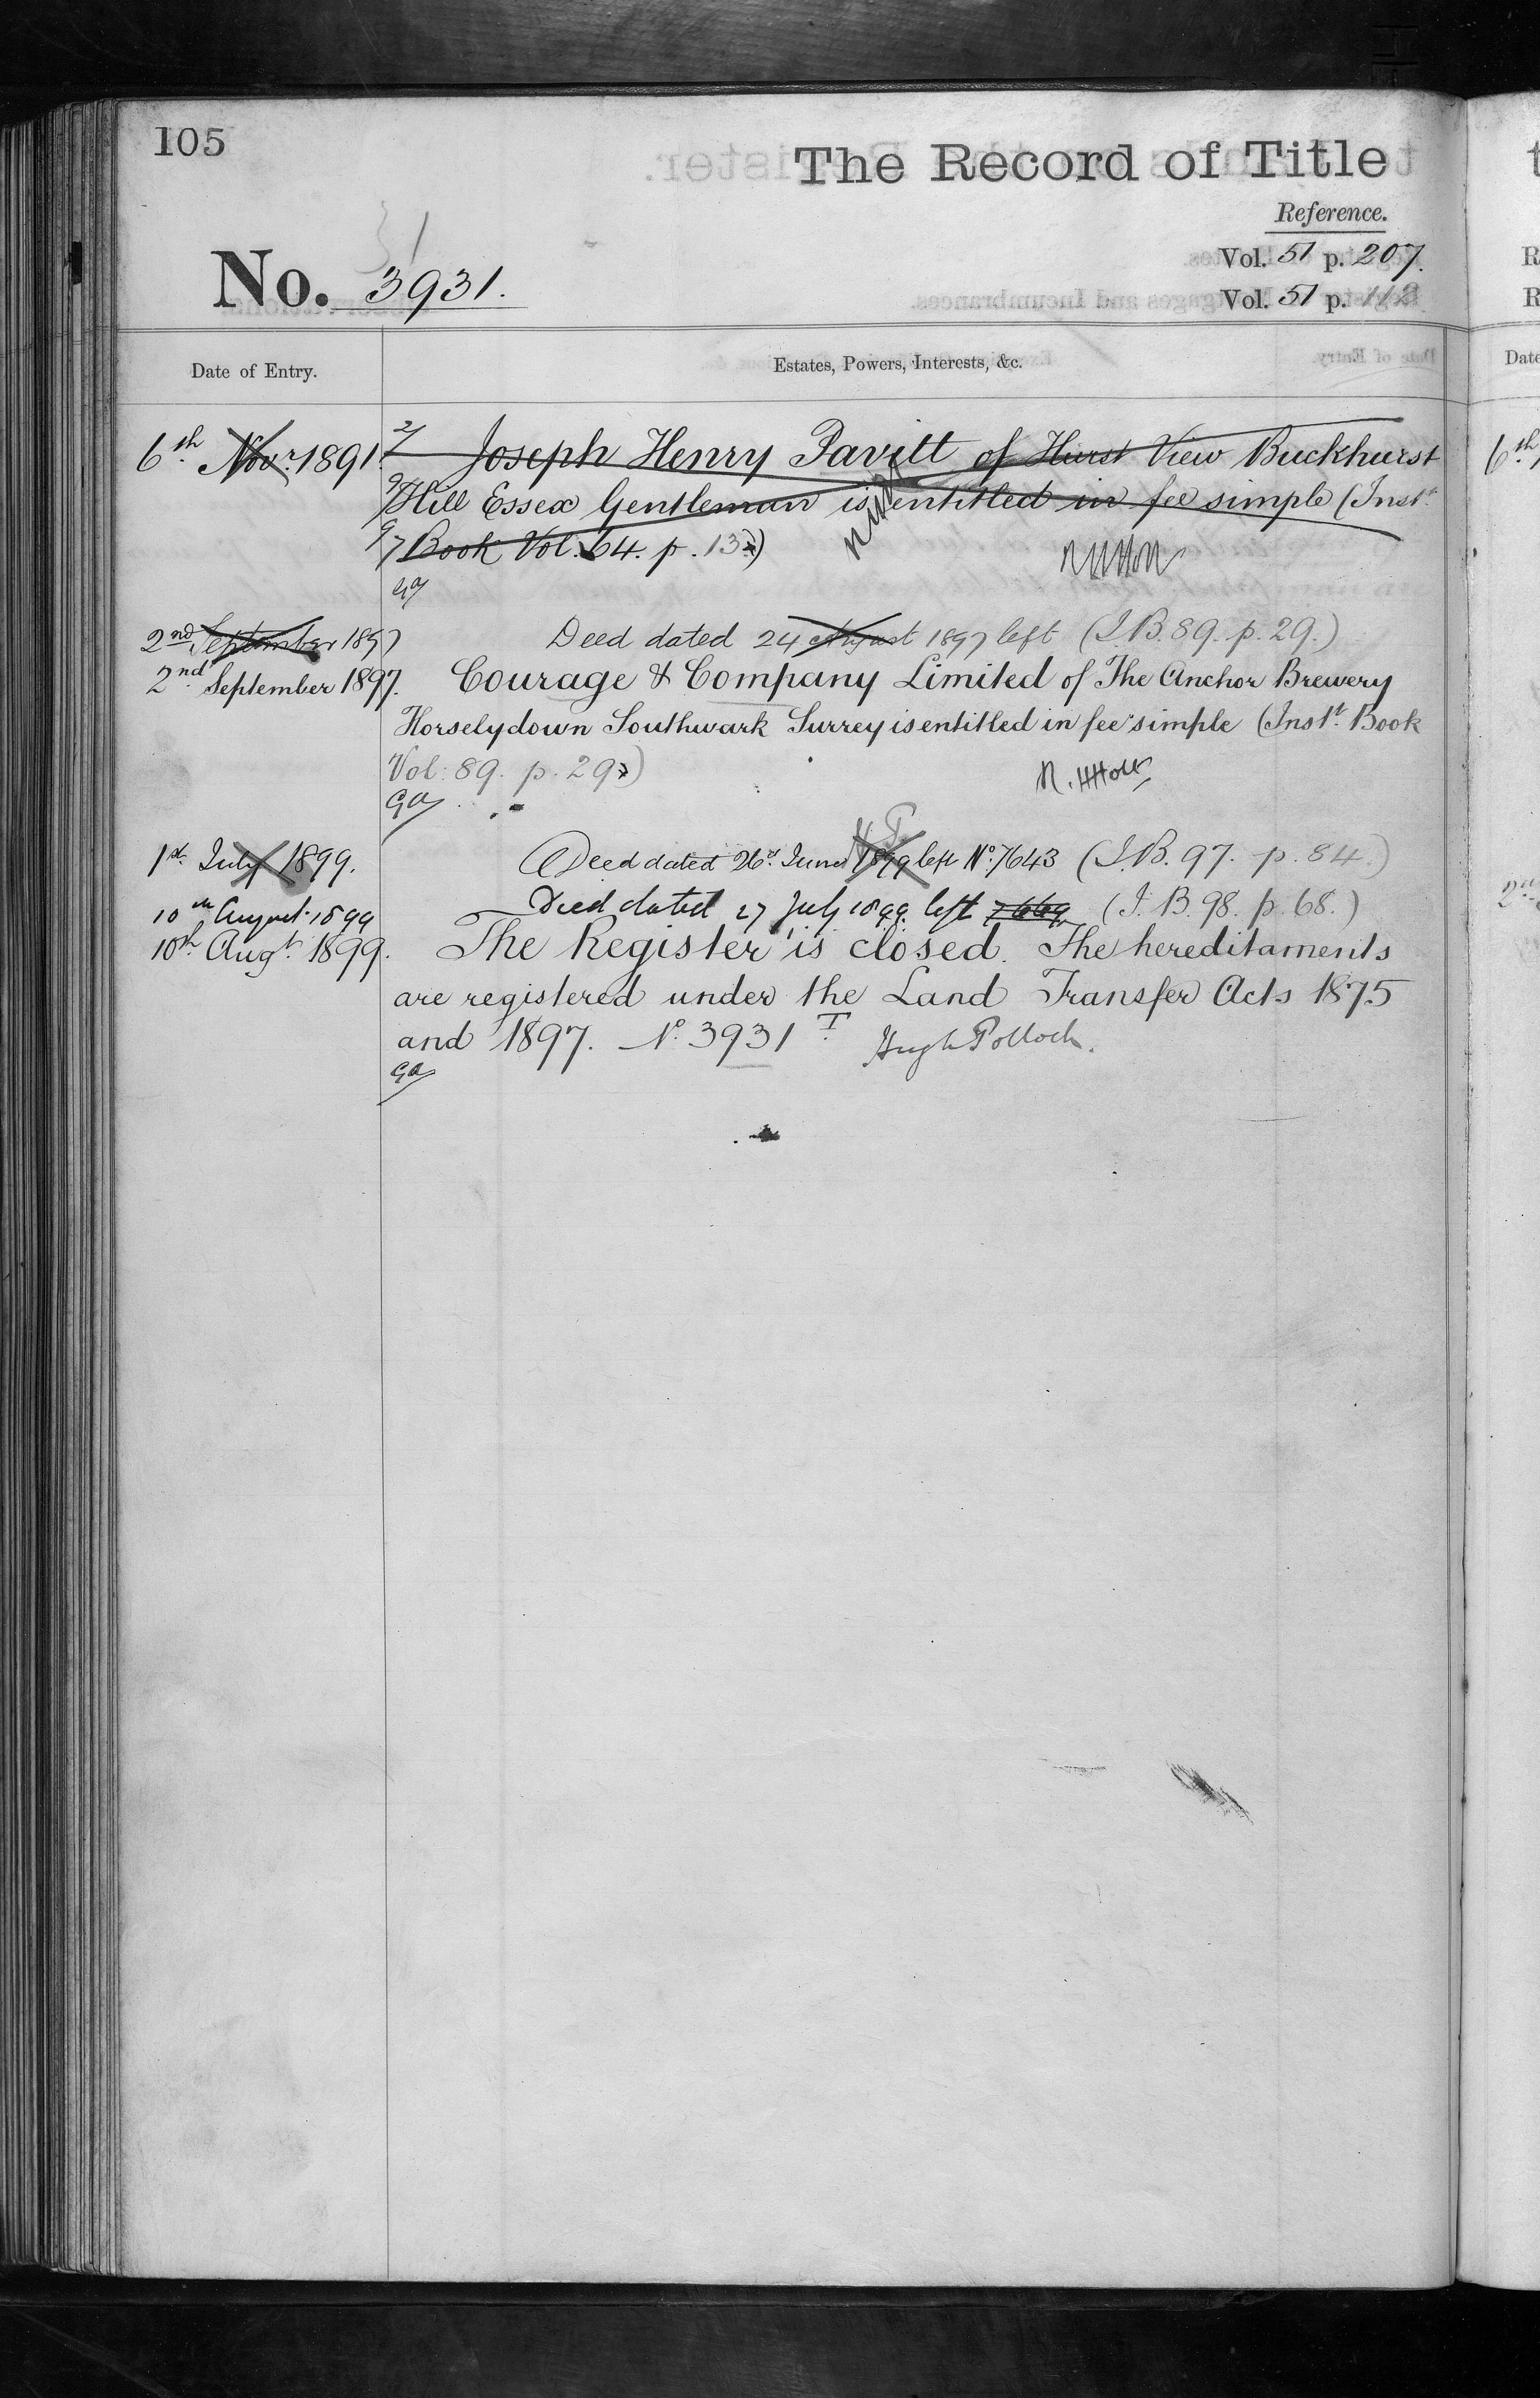 105
The Record of Title
Reference.
No. 3931.
Vol. 51 p. 207.
Vol. 51 p.
Date of Entry.
Estates, Powers, Interests, &c.
6th Novr. 1891. Joseph Henry Pavitt of Hurst View Buckhurst
Hill Essex Gentleman is entitled in fee simple (Instt.
Book Vol. 64. p. 13)
2nd September 1897 Deed dated 24 August 1897 left (I.B. 89. p. 29.)
2nd September 1897. Courage & Company Limited of The Anchor Brewery
Horselydown Southwark Surrey is entitled in fee simple (Instt. Book
Vol: 89. p. 29)
GA
1st July 1899. Deed dated 26th June 1899 left No. 7643 (I.B. 97. p. 84.)
10th August 1899 Deed dated 27 July 1899 left 7669 (I.B. 98. p. 68.)
10th Augt. 1899. The Register is closed. The hereditaments
are registered under the Land Transfer Acts 1875
and 1897. No. 3931 T. Hugh Pollock.
GA